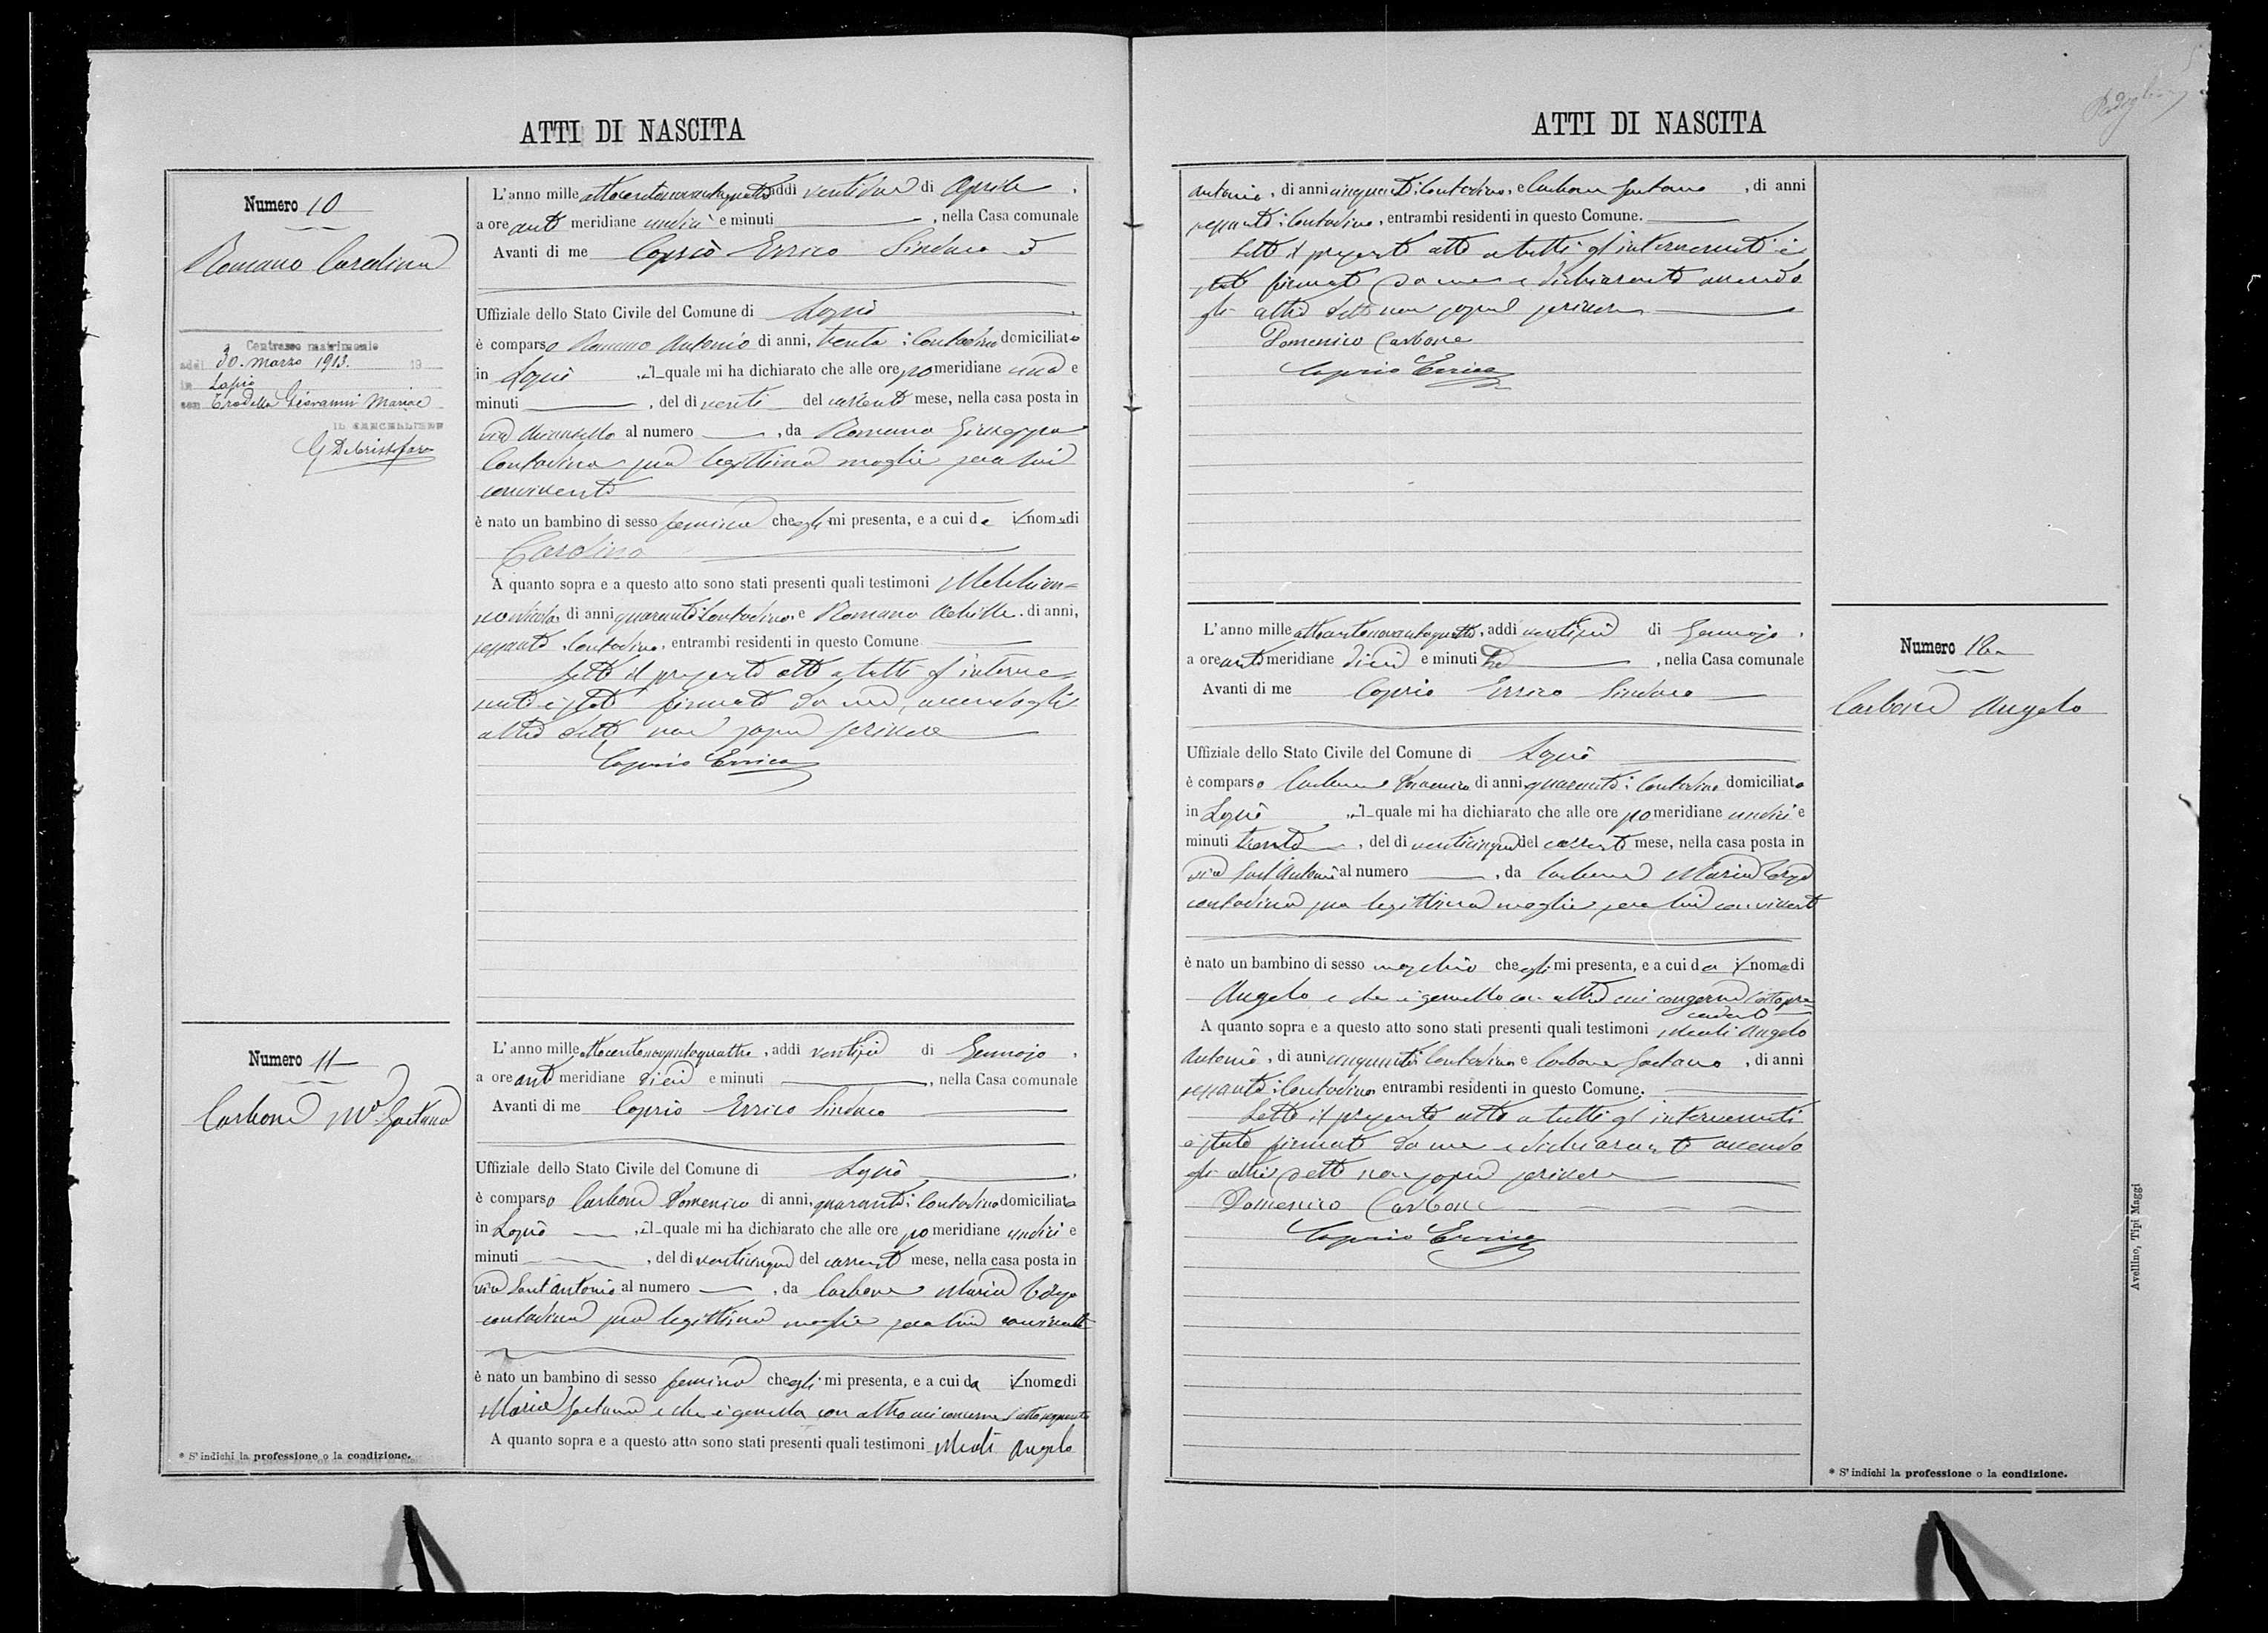 ATTI DI NASCITA
Numero 10
Romano Carolina
Contratto matrimonio
addì 30. marzo 1913. 19
in Lapio
con Trodella Giovanni
IL CANCELLIERE
L'anno mille ottocentonovantaquattro addì ventidue di Aprile,
a ore ant meridiane undici e minuti, nella Casa comunale
Avanti di me Caprio Errico Sindaco
Uffiziale dello Stato Civile del Comune di Lapio
è comparso Romano Antonio di anni, trenta; Contadino domiciliato
in Lapio, il quale mi ha dichiarato che alle ore pomeridiane una e
minuti, del dì venti del corrente mese, nella casa posta in
via al numero, da Romano Giuseppa
Contadina sua legittima moglie seco lui
convivente
è nato un bambino di sesso feminino che egli mi presenta, e a cui dà il nome di
Carolina
A quanto sopra e a questo atto sono stati presenti quali testimoni Melchion=
di anni quaranta; Contadino, e Romano Achille. di anni,
sessanta, Contadino, entrambi residenti in questo Comune
Letto il presente atto a tutti gl'interve
nuti è stato firmato da me, avendo gli
altri detto non sapere scrivere
Caprio Errico
Numero 11
Carbone Ma Gaetana
L'anno mille ottocentonovantaquattro, addì ventisei di Gennajo,
a ore ant meridiane dieci e minuti, nella Casa comunale
Avanti di me Caprio Errico Sindaco
Uffiziale dello Stato Civile del Comune di Lapio
è comparso Carbone Domenico di anni, quaranta; Contadino domiciliato
in Lapio, il quale mi ha dichiarato che alle ore pomeridiane undici e
minuti, del dì venticinque del corrente mese, nella casa posta in
via Sant'Antonio al numero, da Carbone Maria
contadina sua legittima moglie seco lui convivente
è nato un bambino di sesso feminino che egli mi presenta, e a cui dà il nome di
Maria Gaetana e che è gemella con altro cui concerne l'atto seguente
A quanto sopra e a questo atto sono stati presenti quali testimoni Meoli Angelo
* S'indichi la professione o la condizione.
ATTI DI NASCITA
Antonio, di anni cinquanta; Contadino, e Carbone Gaetano, di anni
sessanta; Contadino, entrambi residenti in questo Comune.
Letto il presente atto a tutti gl'intervenuti è
stato firmato da me e dichiarante avendo
gli altri detto non sapere scrivere
Domenico Carbone
Caprio Errico
Numero 12
Carbone Angelo
L'anno mille ottocentonovantaquattro, addì ventisei di Gennajo,
a ore ant meridiane dieci e minuti tre, nella Casa comunale
Avanti di me Caprio Errico Sindaco
Uffiziale dello Stato Civile del Comune di Lapio
è comparso Carbone Domenico di anni quaranta; Contadino domiciliato
in Lapio, il quale mi ha dichiarato che alle ore pomeridiane undici e
minuti trenta, del dì venticinque del corrente mese, nella casa posta in
via Sant'Antonio al numero, da Carbone Maria
contadina sua legittima moglie seco lui convivente
è nato un bambino di sesso maschio che egli mi presenta, e a cui dà il nome di
Angelo e che è gemello con altra cui concerne l'atto pre
cedente
A quanto sopra e a questo atto sono stati presenti quali testimoni Meoli Angelo
Antonio, di anni cinquanta; Contadino e Carbone Gaetano, di anni
sessanta; Contadino, entrambi residenti in questo Comune.
Letto il presente atto a tutti gl'intervenuti
è stato firmato da me e dichiarante avendo
gli altri detto non sapere scrivere
Domenico Carbone
Caprio Errico
* S'indichi la professione o la condizione.
Avellino, Tipi Maggi